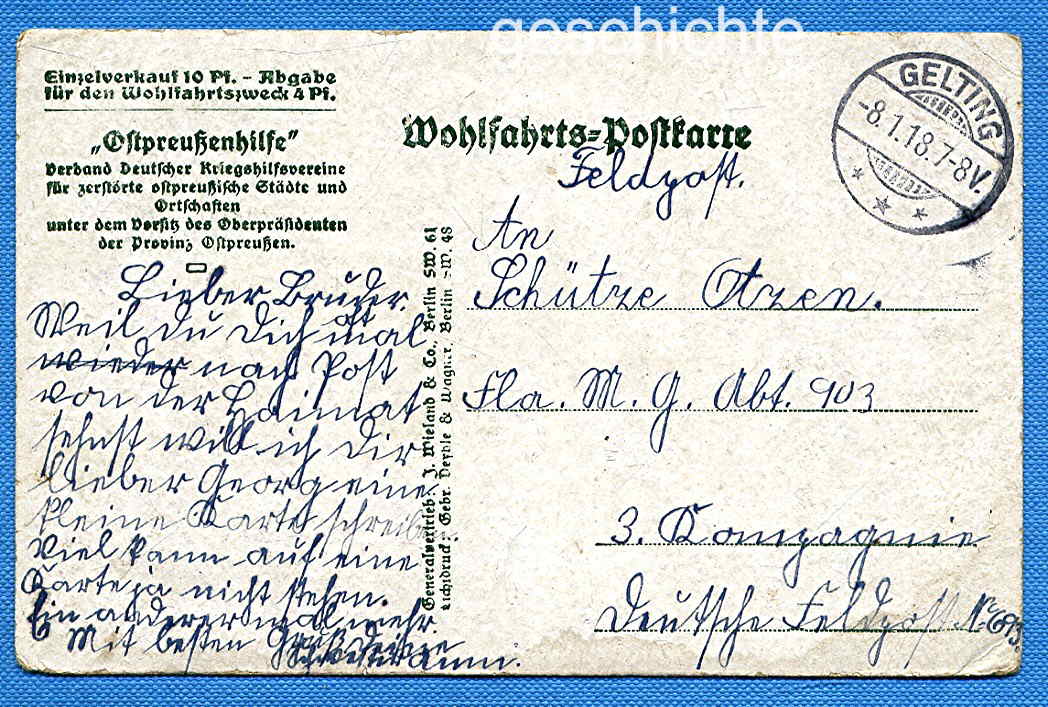 geschichte
Einzelverkauf 10 Pf. - Abgabe
für den Wohlfahrtszweck 4 Pf.
„Ostpreußenhilfe"
Verband Deutscher Kriegshilfsvereine
für zerstörte ostpreußische Städte und
Ortschaften
unter dem Vorsitz des Oberpräsidenten
der Provinz Ostpreußen.
Wohlfahrts=Postkarte
GELTING
-8.1.18.7-8V.
Feldpost.
An
Schütze Otzen.
Fla. M. G. Abt. 903
3. Kompagnie
Deutsche Feldpost No
Generalvertrieb: J. Wieland & Co., Berlin SW. 61
Lichtdruck: Gebr. & Wagner, Berlin SW. 48
Lieber Bruder.
Weil du dich mal
wieder nach Post
von der Heimat
sehnst will ich dir
lieber Georg eine
kleine Karte schreiben
Viel kann auf eine
Karte ja nicht stehen.
Ein anderer mal mehr
Mit besten Gruß deine
Schwester Anni.